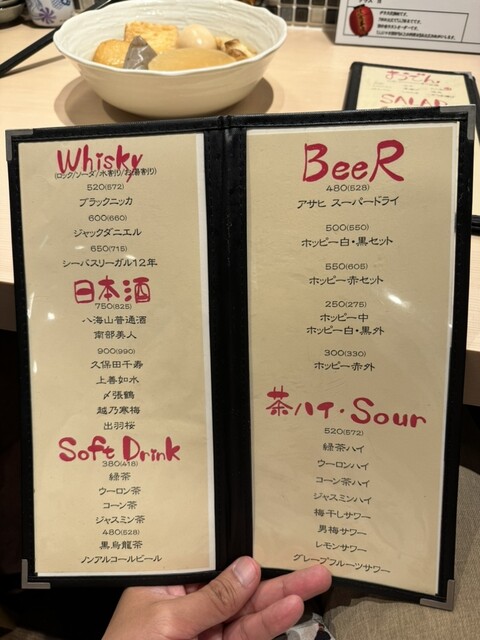 Whisky
(ロック/ソーダ/水割り/お湯割り)
520(572)
ブラックニッカ
600(660)
ジャックダニエル
650(715)
シーバスリーガル12年
日本酒
750(825)
八海山普通酒
南部美人
900(990)
久保田千寿
上善如水
〆張鶴
越乃寒梅
出羽桜
Soft Drink
380(418)
緑茶
ウーロン茶
コーン茶
ジャスミン茶
480(528)
黒烏龍茶
ノンアルコールビール
BeeR
480(528)
アサヒ スーパードライ
500(550)
ホッピー白・黒セット
550(605)
ホッピー赤セット
250(275)
ホッピー中
ホッピー白・黒外
300(330)
ホッピー赤外
茶ハイ・Sour
520(572)
緑茶ハイ
ウーロンハイ
コーン茶ハイ
ジャスミンハイ
梅干しサワー
男梅サワー
レモンサワー
グレープフルーツサワー
SALAD